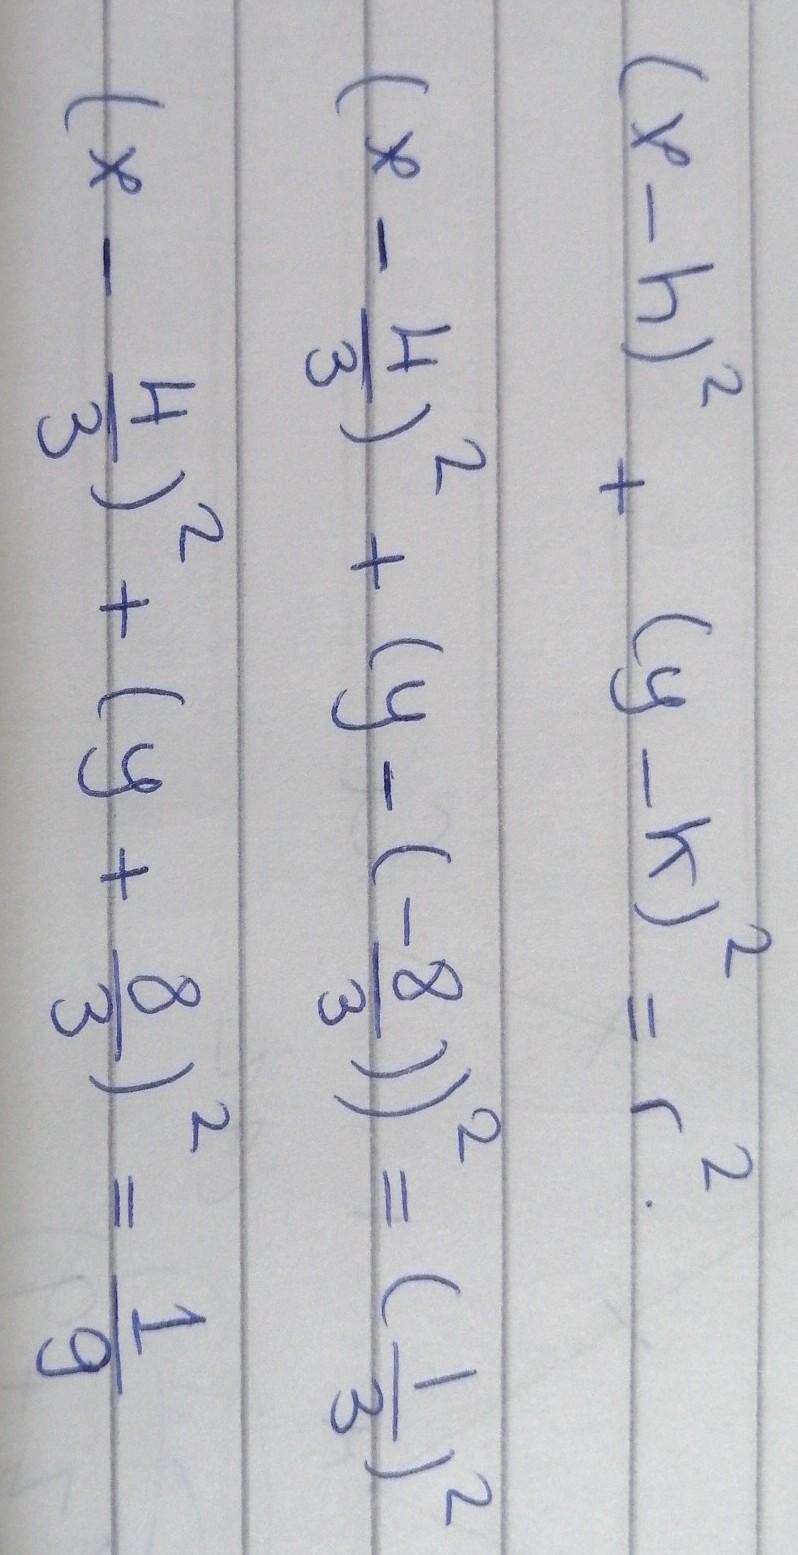 (x - h)² + (y - k)² = r².
(x - 4/3)² + (y - (-8/3))² = (1/3)²
(x - 4/3)² + (y + 8/3)² = 1/9